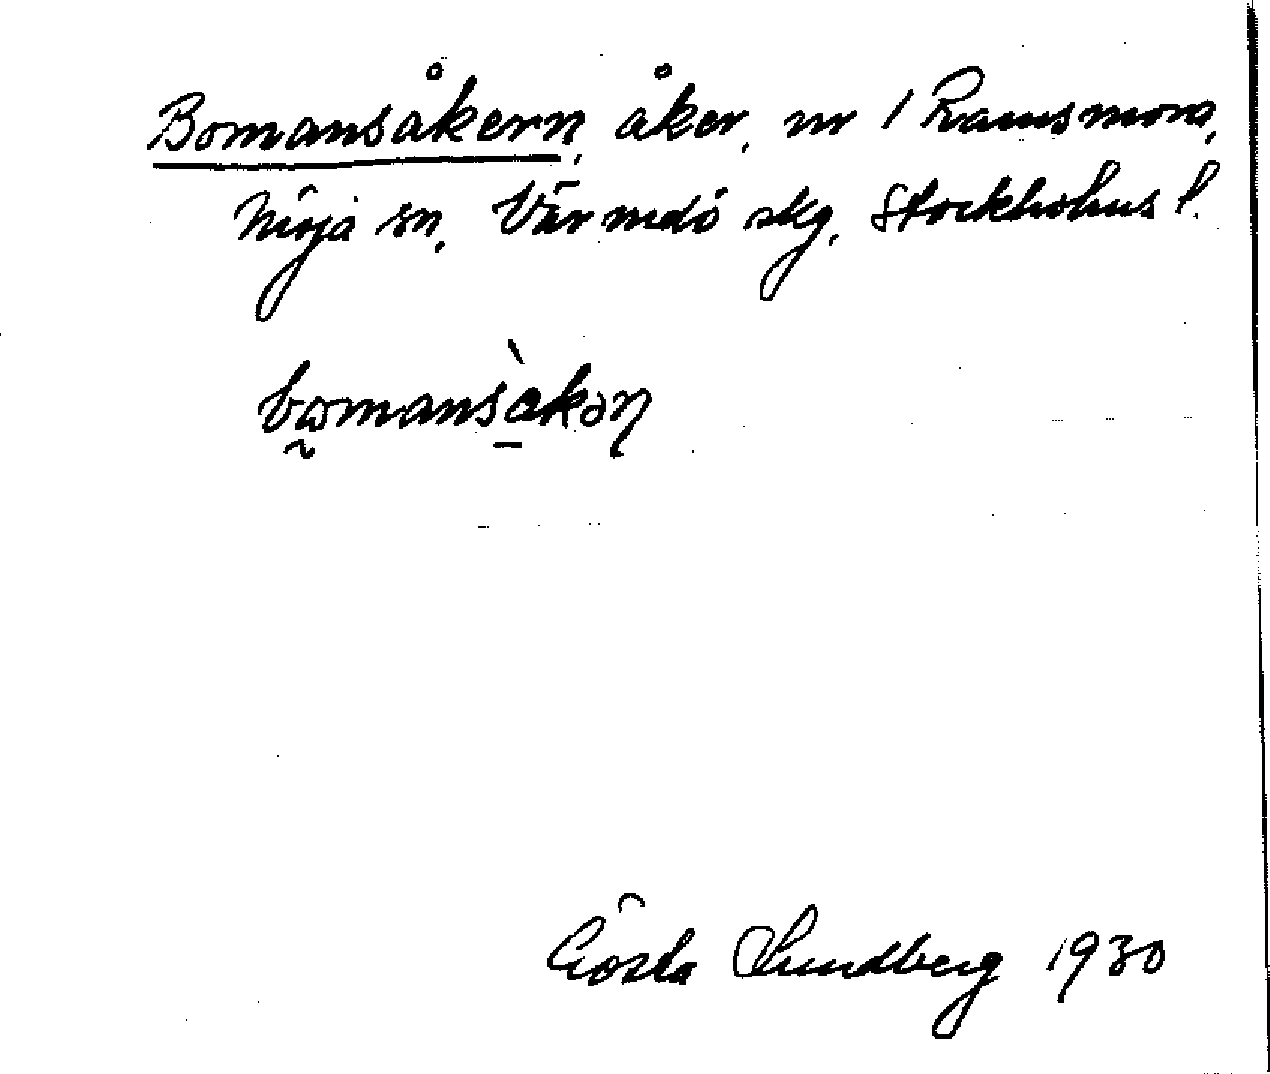 Bomansåkern, åker, nr 1 Ramsmora,
Möja sn, Värmdö skg, Stockholms l.
bωmansàkəη
Gösta Sundberg 1930